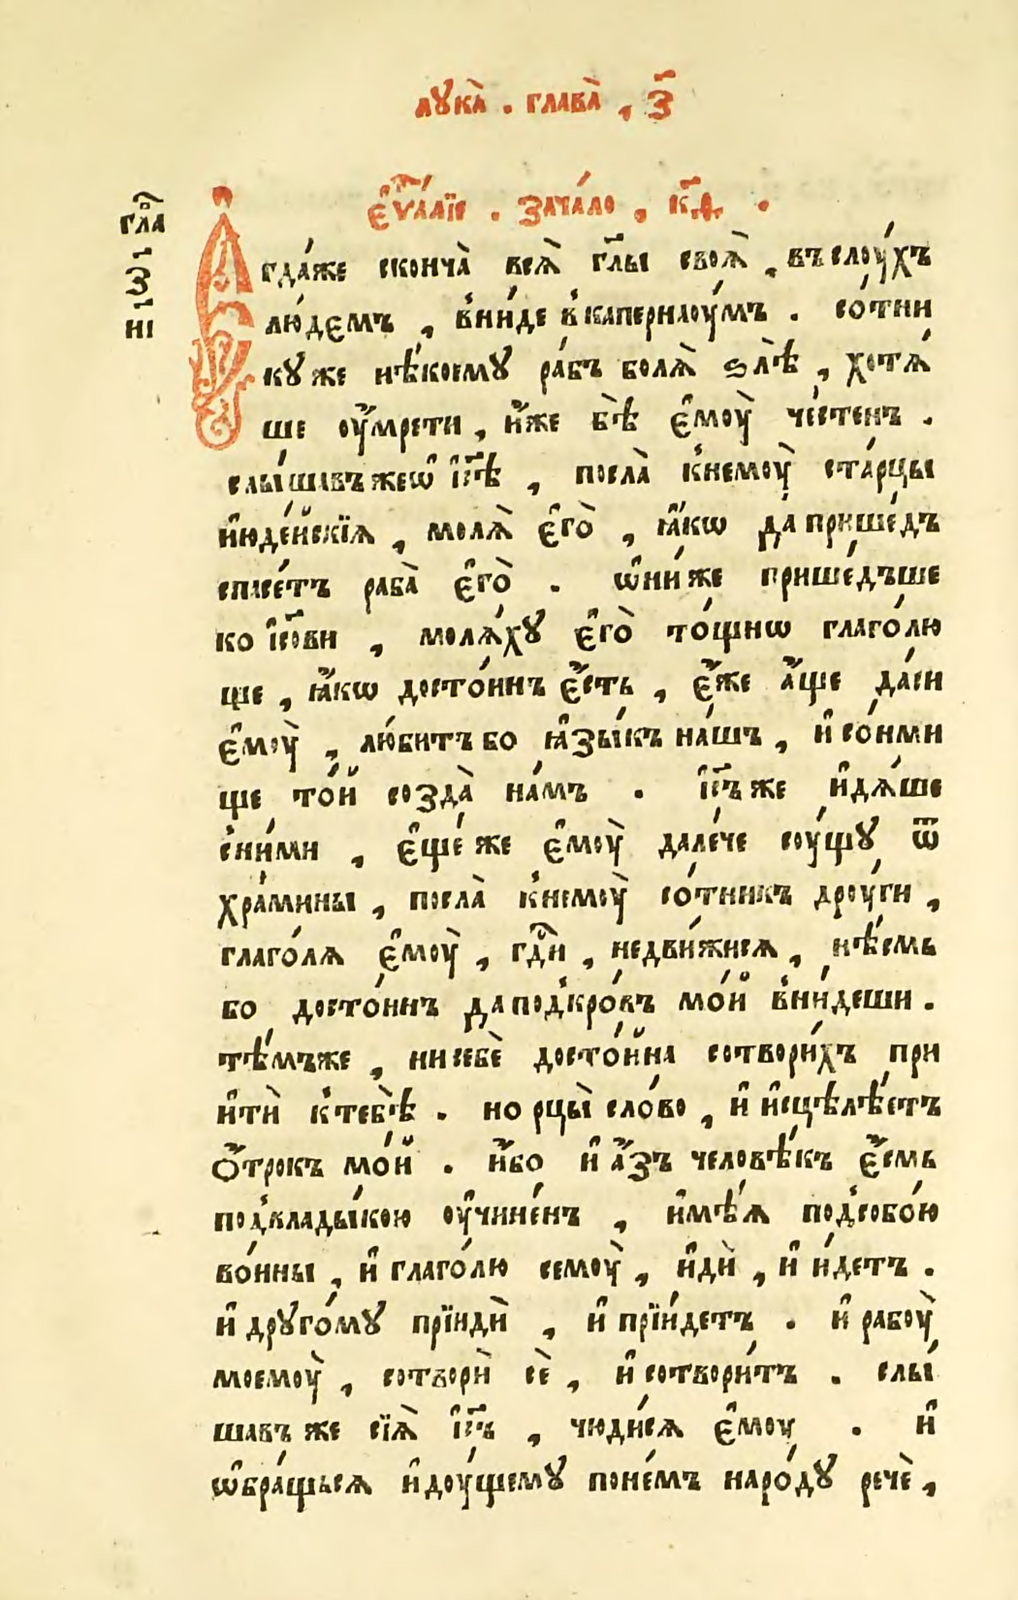 лꙋка̀ . глава̀ , з҃
є҆ѵⷢ҇а́лїе . зача́ло , к҃ѳ .
глⷡ҇а
з҃
н҃і
Єгда́же сконча̀ всѧ̀ гл҃ы своѧ̀ , въслоу́хъ
лю́демъ , в̾ни́де в̾капернаоу́мъ . со́тни
кꙋ же нѣ́коемꙋ ра́бъ болѧ̀ ѕлѣ̀ , хотѧ́
ше оу҆́мрети , и҆́же бѣ̀ є҆моу̀ че́стенъ .
слы́шавъжеѡ҆ і҆с҃ѣ , посла̀ к̾немоу̀ ста́рцы
и҆юде́йскїѧ , молѧ̀ є҆го̀ , ꙗ҆́кѡ да̀ прише́дъ
спасе́тъ раба̀ є҆го̀ . ѡ҆ни́же прише́дъше
ко і҆с҃ови , молѧ́хꙋ є҆го̀ то́щнѡ глаго́лю
ще , ꙗ҆́кѡ досто́инъ є҆́сть , є҆́же а҆́ще да́си
є҆моу̀ , лю́битъ бо ꙗ҆зы́къ на́шъ , и҆ со́нми
ще то́й созда̀ на́мъ . і҆с҃ъ же и҆дѧ́ше
с̾ни́ми , є҆ще́ же є҆моу̀ дале́че соу́щꙋ ѿ
хра́мины , посла̀ к̾немоу̀ со́тникъ дроу́ги ,
глаго́лѧ є҆моу̀ , гдⷭ҇и , недви́жисѧ , нѣ́смь
бо досто́инъ да под̾кро́въ мо́й в̾ни́деши .
тѣ́мъже , ни себѐ досто́йна сотвори́хъ прі
и҆тѝ к̾тебѣ̀ . но рцы̀ сло́во , и҆ и҆сцѣлѣ́етъ
о҆́трокъ мо́й . и҆́бо и҆ а҆́зъ человѣ́къ є҆́смь
под̾влады́кою оу҆чине́нъ , и҆мѣ́ѧ под̾собо́ю
во́ины , и҆ глаго́лю семоу̀ , и҆дѝ , и҆ и́детъ .
и҆ дрꙋго́мꙋ прїидѝ , и҆ прїи́детъ . и҆ рабоу̀
моемоу̀ , сотворѝ сѐ , и҆ сотвори́тъ . слы́
шавъ же сїѧ̀ і҆с҃ъ , чюди́сѧ є҆моу̀ . и҆
ѡ҆бра́щьсѧ и҆доу́щемꙋ поне́мъ наро́дꙋ речѐ ,